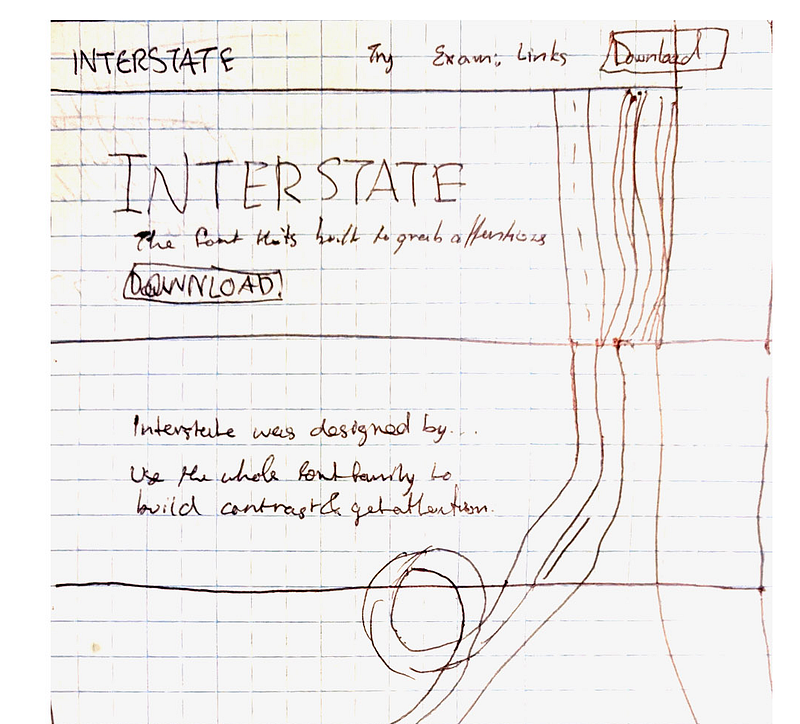 INTERSTATE Try Exam: Links Download
INTERSTATE
The font that's built to grab attention
DOWNLOAD
Interstate was designed by...
Use the whole font family to
build contrast & get attention.